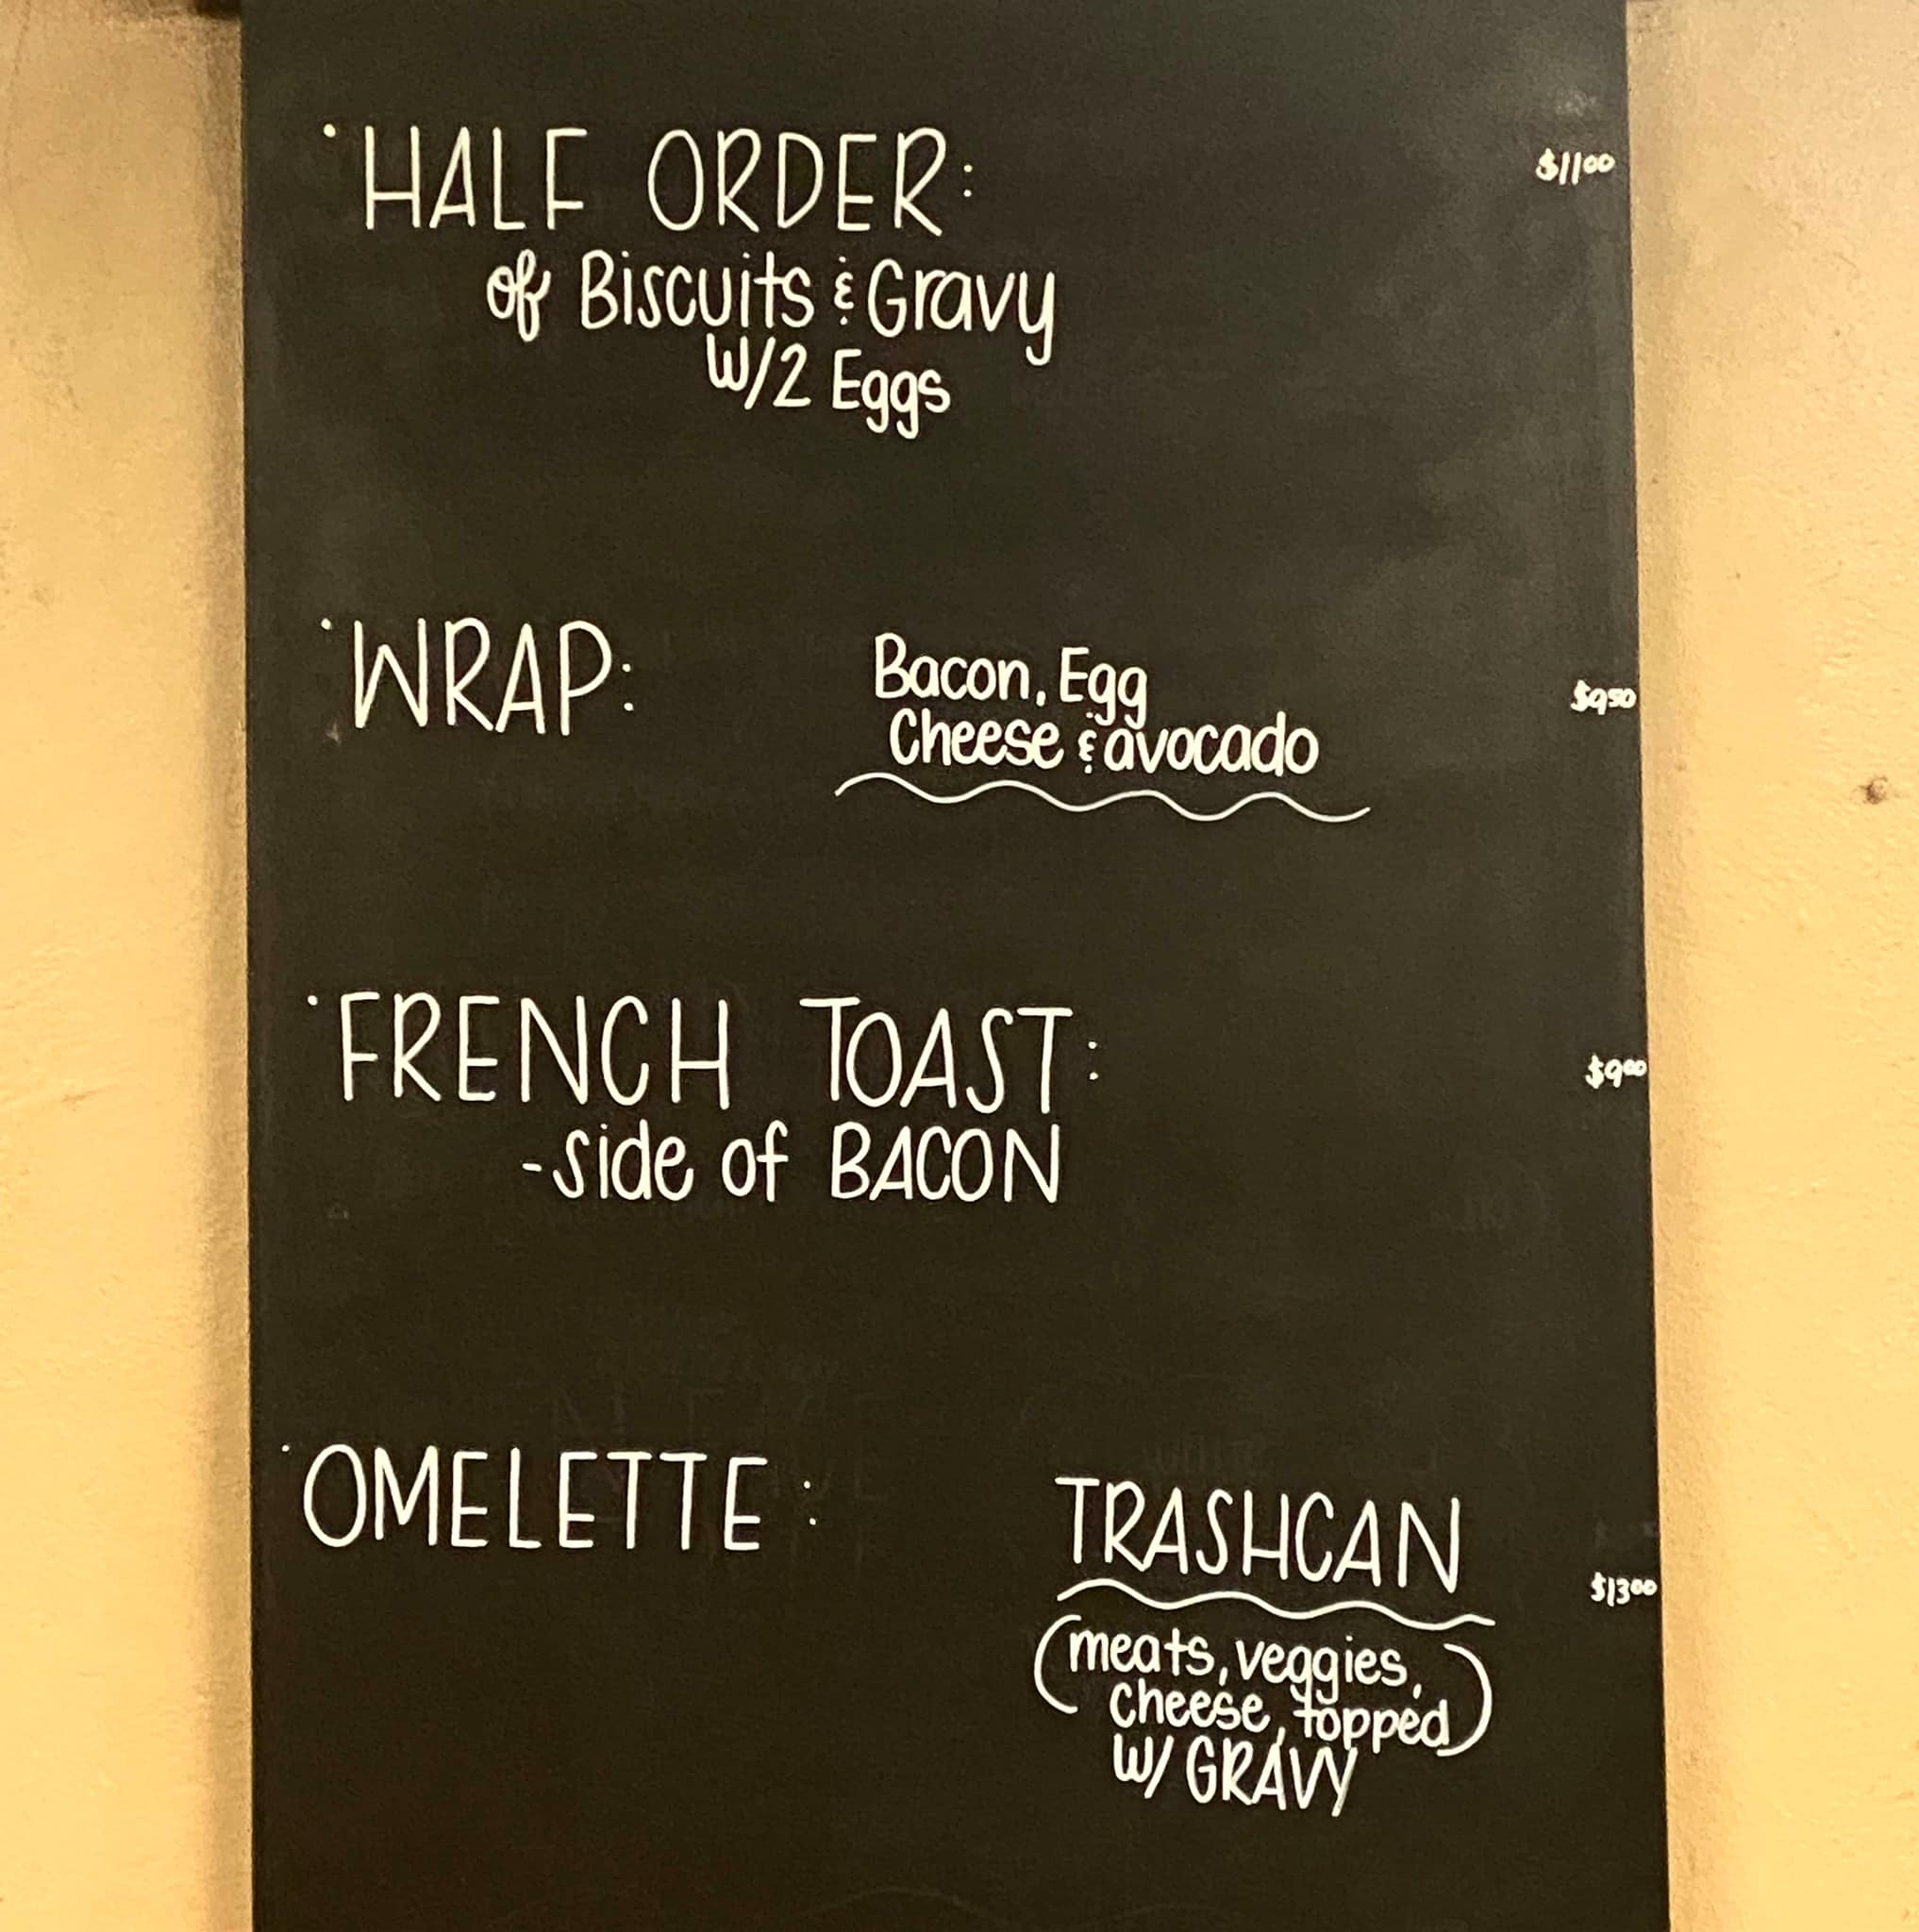 · HALF ORDER: $11⁰⁰
of Biscuits & Gravy
W/2 Eggs
· WRAP: Bacon, Egg $9⁵⁰
Cheese & avocado
· FRENCH TOAST: $9⁰⁰
-side of BACON
· OMELETTE: TRASHCAN $13⁰⁰
(meats, veggies,
cheese, topped)
W/ GRAVY